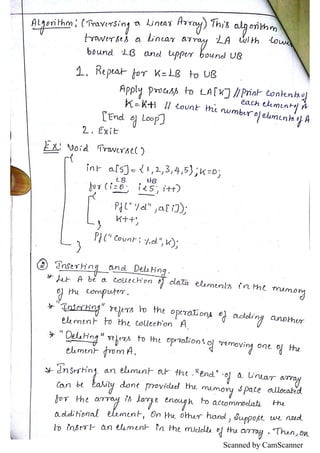 Algorithm: (Traversing a Linear Array) This algorithm
traverses a linear array LA with lower
bound LB and upper bound UB
1. Repeat for K=LB to UB
Apply process to LA[K] //Print contents of
each element of A
K=K+1 // count the number of elements of A
[End of Loop]
2. Exit
Ex: Void Traverse()
{
int a[5]={1,2,3,4,5}; K=0;
LB UB
for (i=0; i<5; i++)
{
Pf("%d", a[i]);
K++;
}
Pf("Count: %d", K);
}
② Inserting and Deleting.
* Let A be a collection of data elements in the memory
of the computer.
* "Inserting" refers to the operations of adding another
element to the collection A.
* "Deleting" refers to the operations of removing one of the
element from A.
* Inserting an element at the "End" of a linear array
can be easily done provided the memory space allocated
for the array is large enough to accommodate the
additional element. On the other hand, suppose we need
to insert an element in the middle of the array. Then, on
Scanned by CamScanner